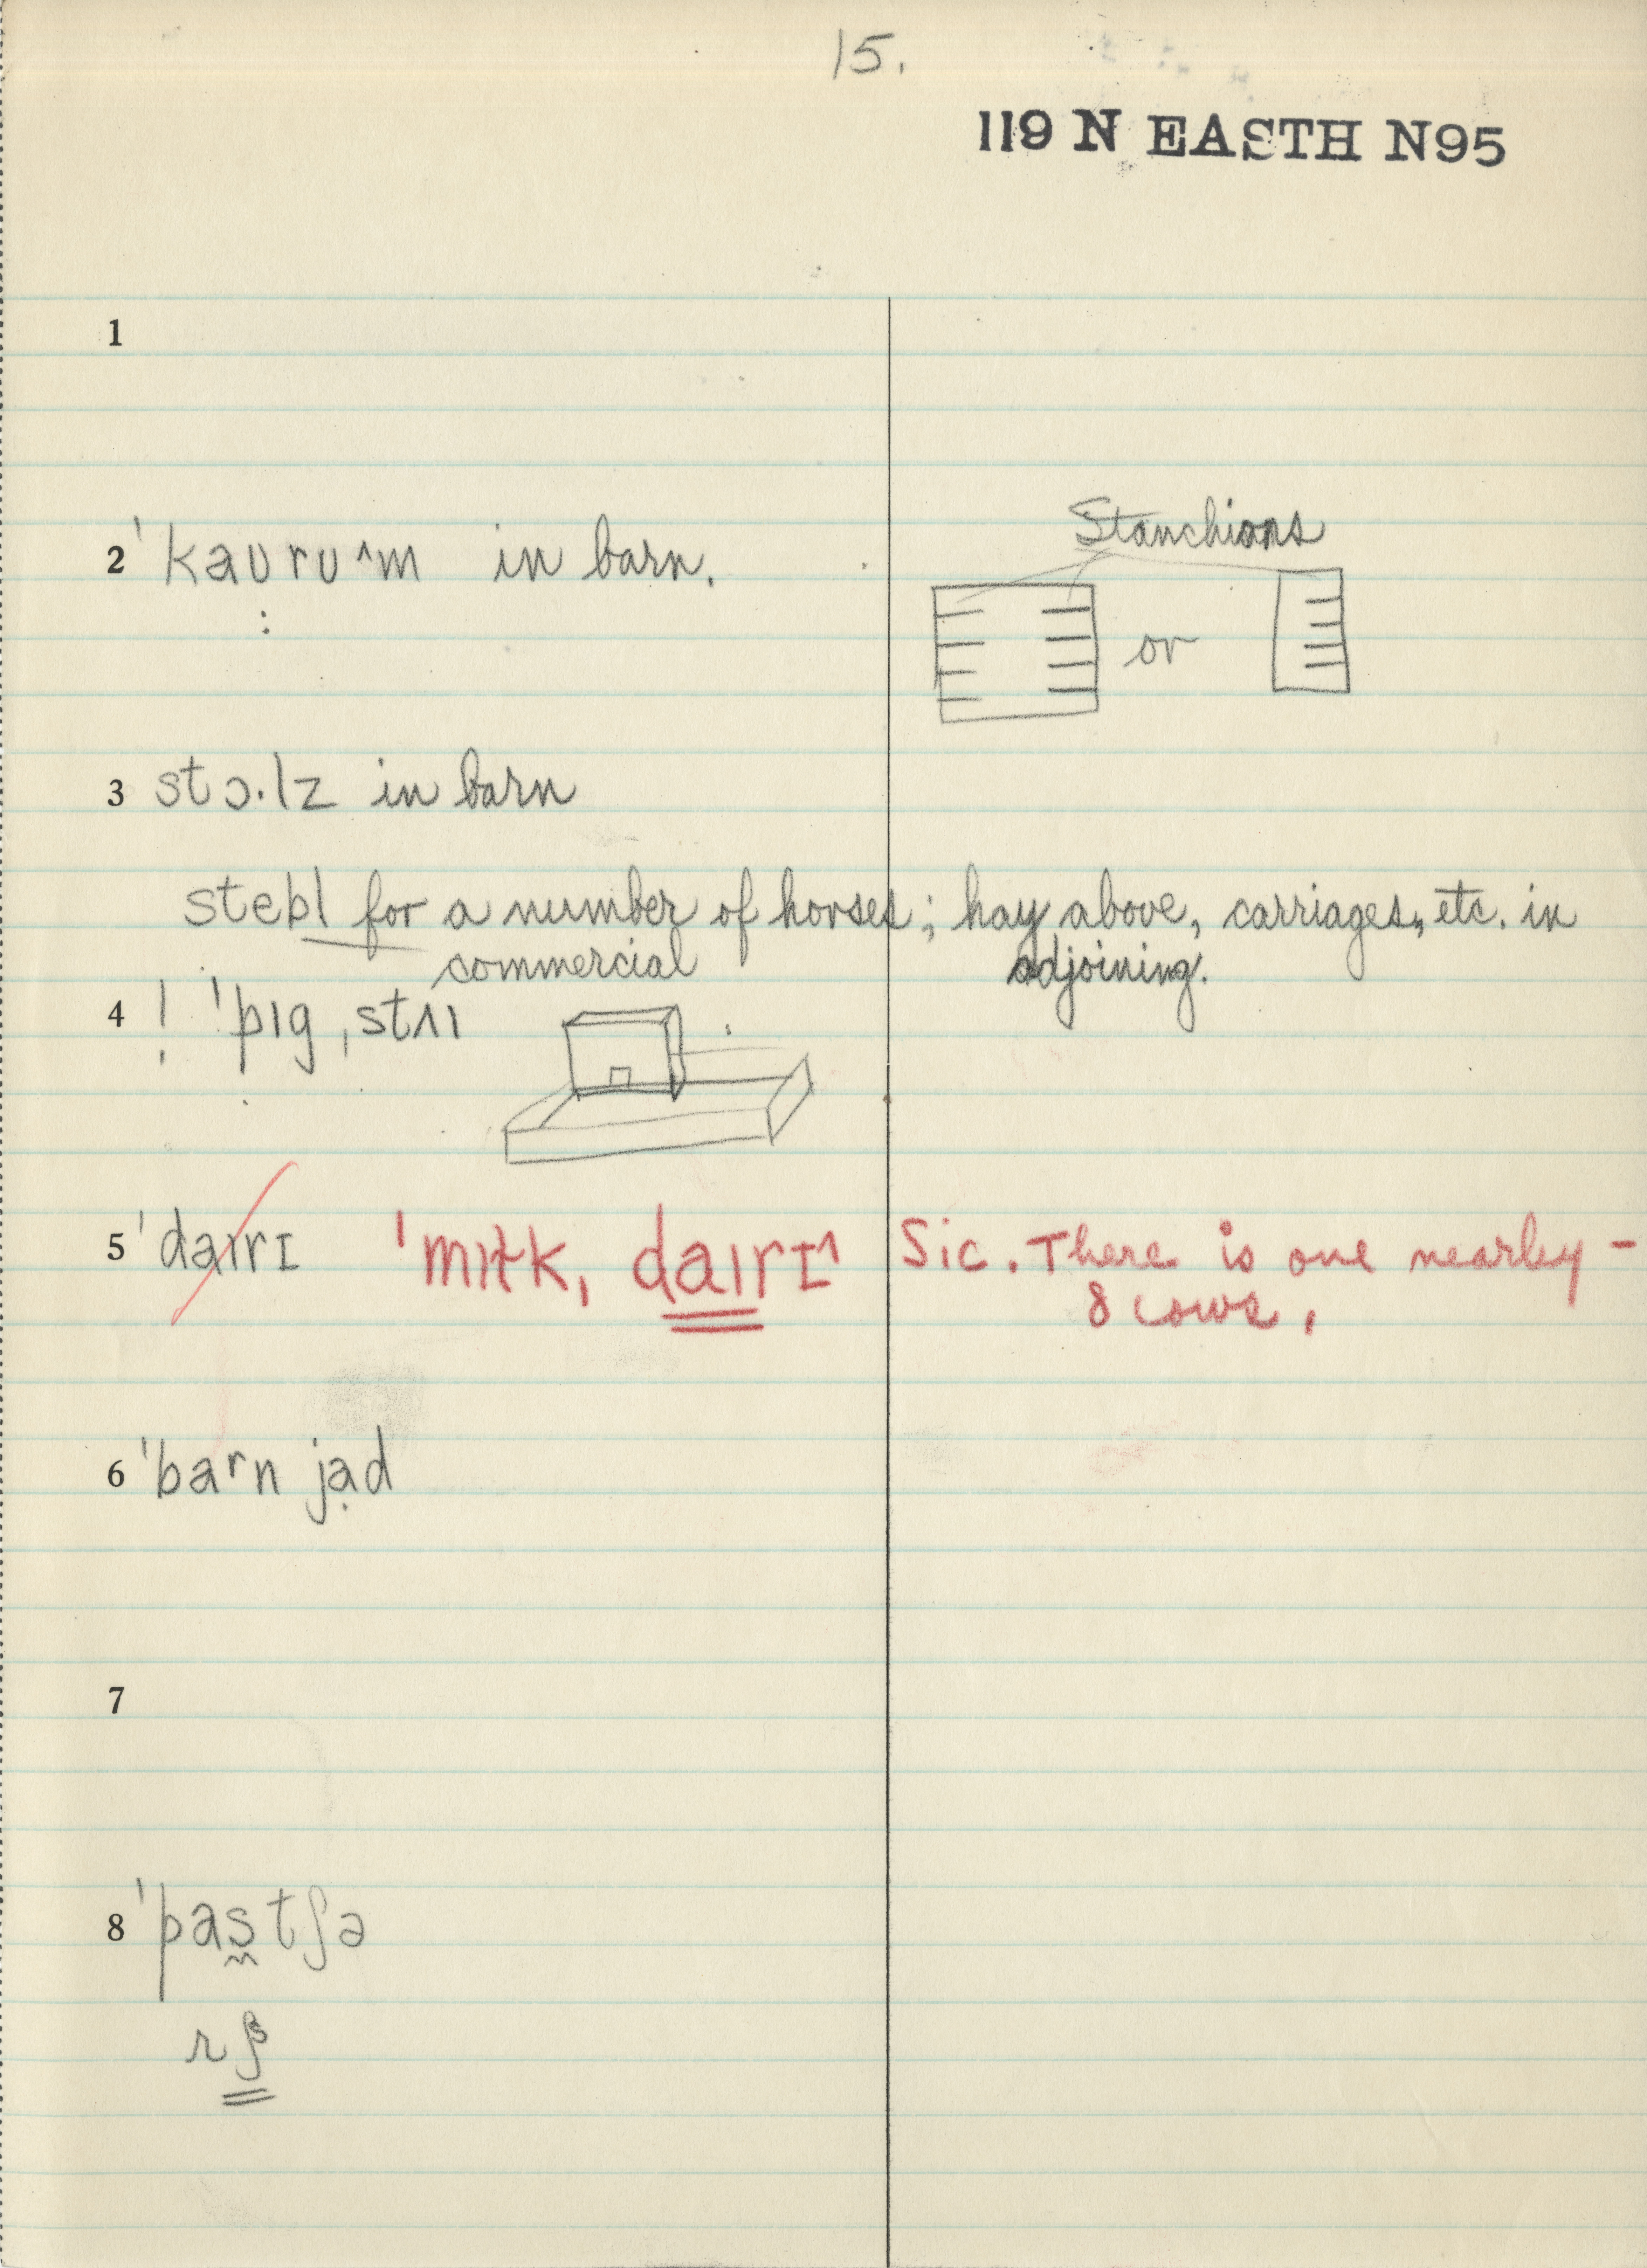 15.
119 N EASTH N95
1
2 ˈkaʊrʊ^m in barn.
Stanchions
or
3 stɔ.lz in barn
stebl for a number of horses; hay above, carriages, etc. in
commercial adjoining.
4 ! ˈpɪg ˌstʌɪ
5 ˈdaɪrɪ ˈmɪɫk, daɪrɪ^ Sic. There is one nearby -
8 cows.
6 ˈbaʳn jạd
7
8 ˈpas̰tʃə